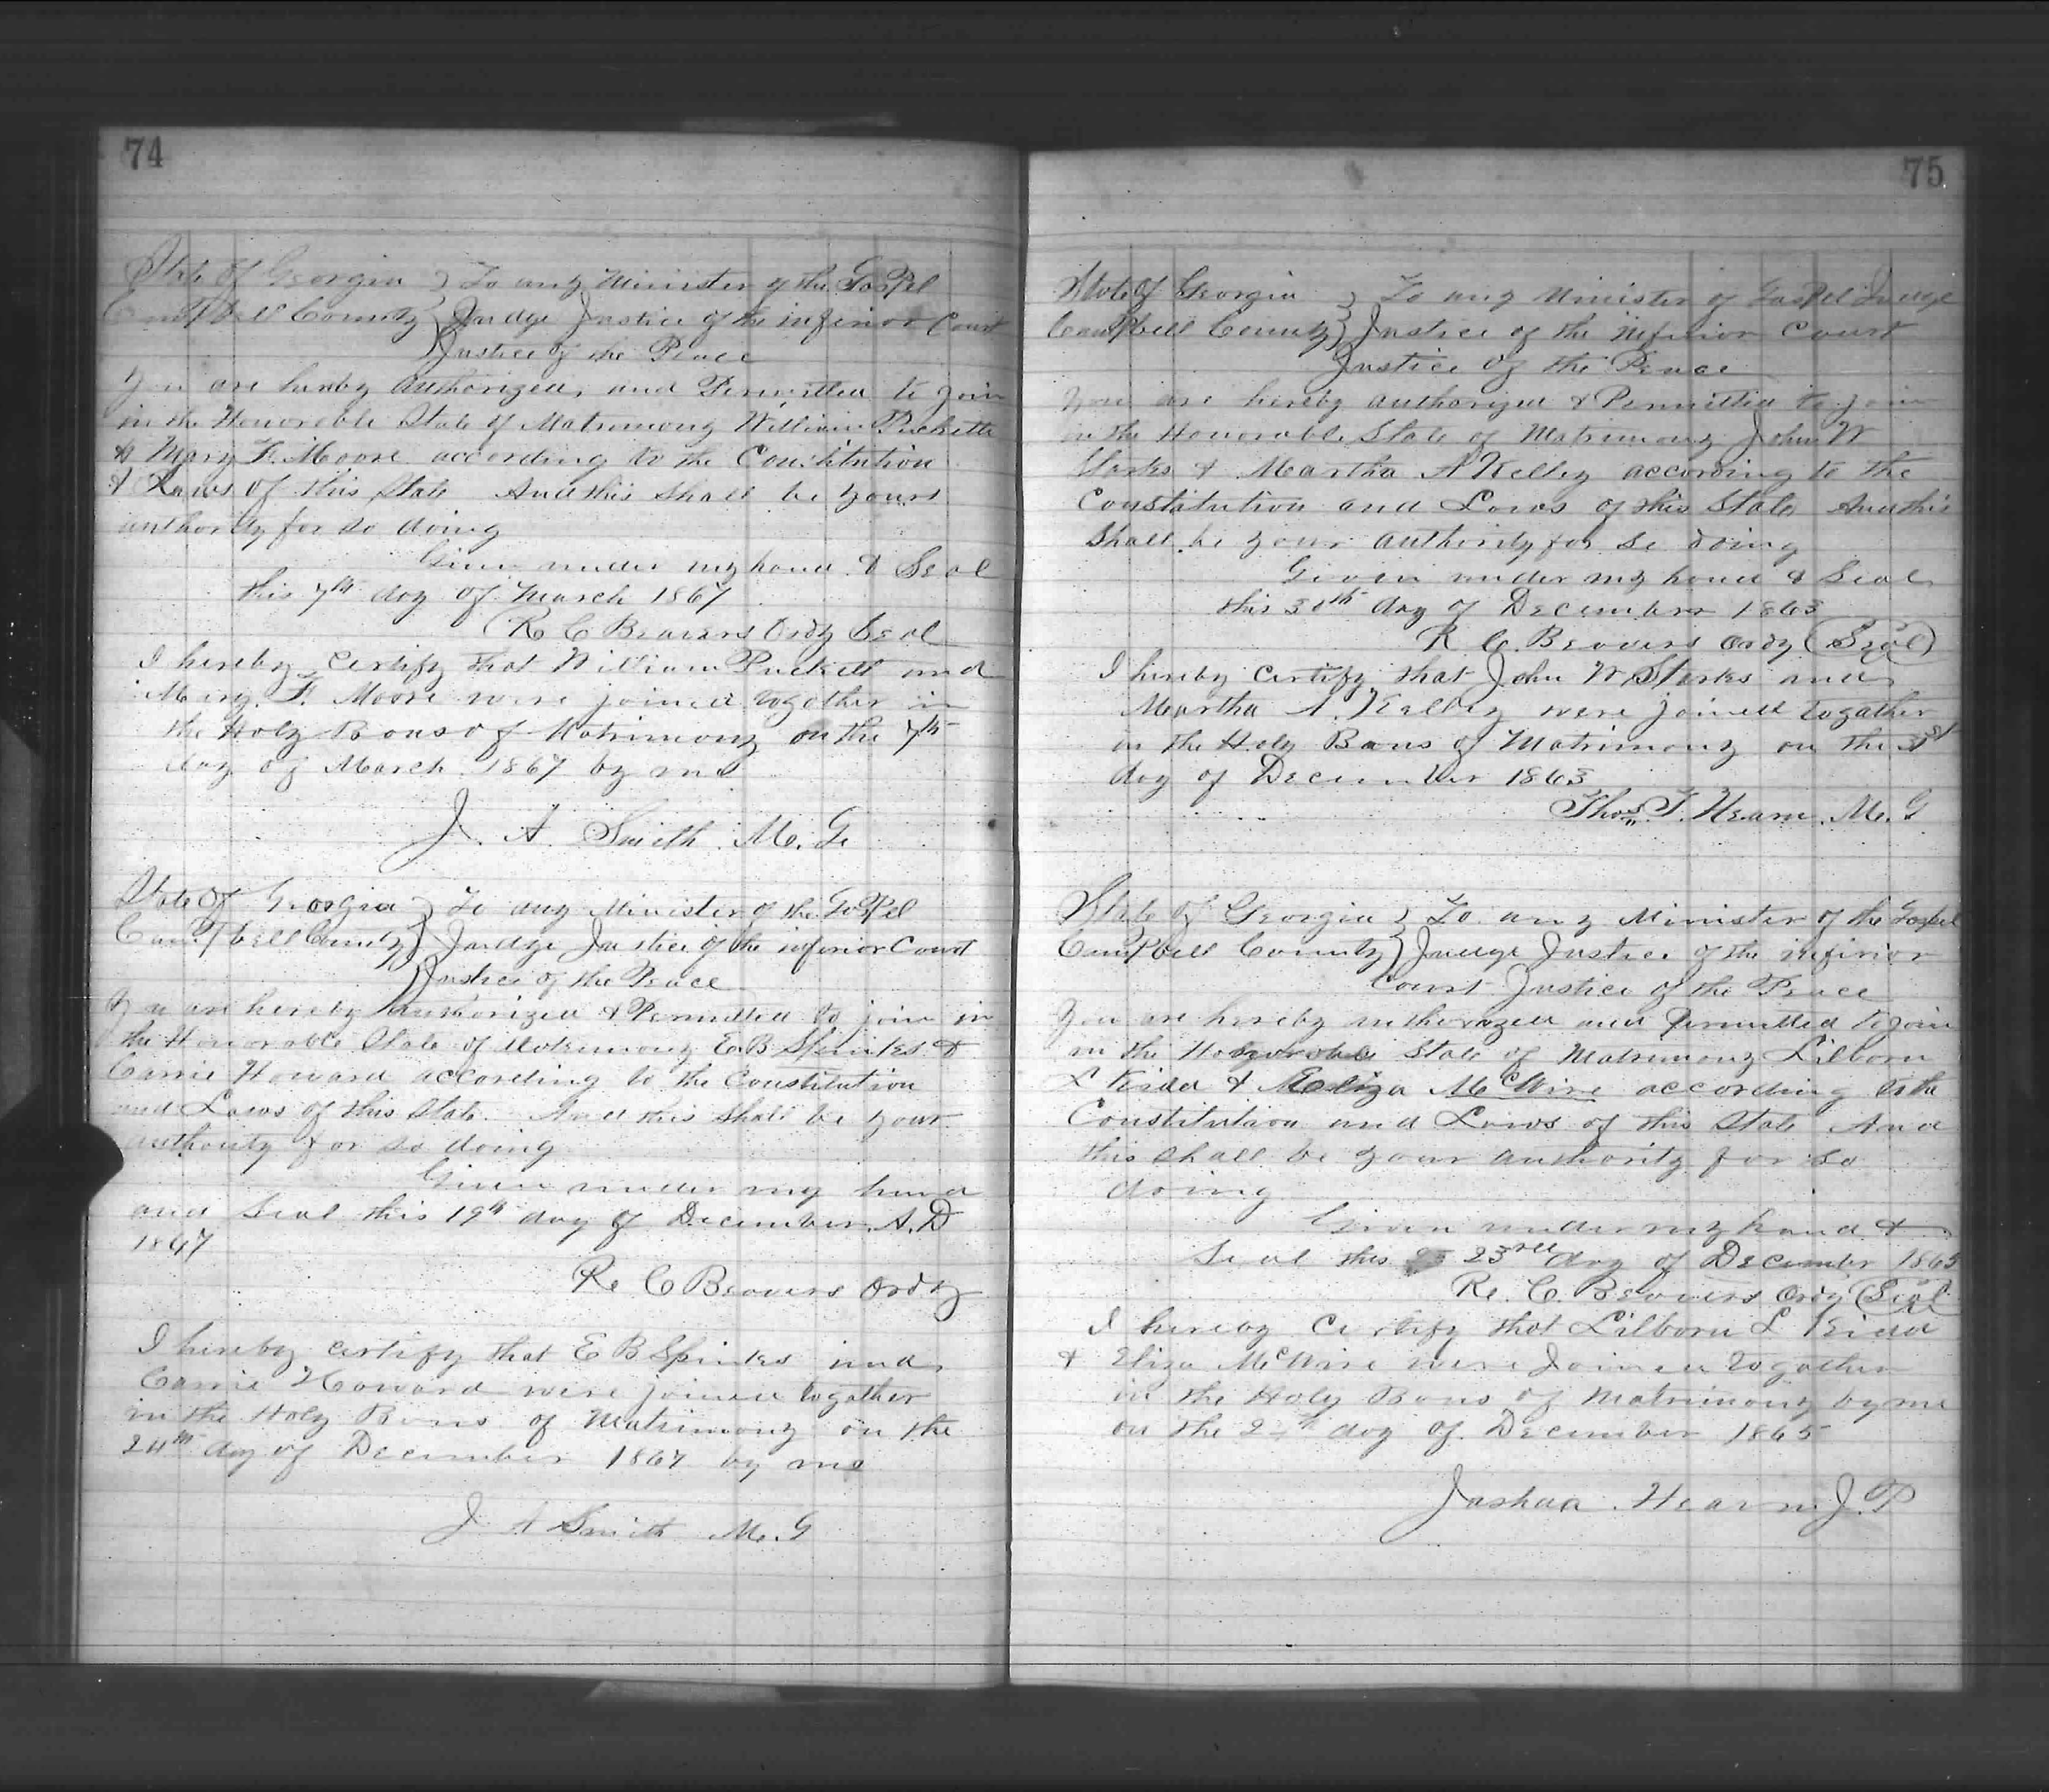 74
State of Georgia } To any Minister of the Gospel
Campbell County } Judge Justice of the inferior Court
Justice of the Peace
You are hereby authorized, and Permitted to join
in the Honorable State of Matrimony William Puckette
& Mary F. Moore according to the Constitution
& Laws of this State And this shall be yours
authority for so doing
Given under my hand & Seal
this 7th day of March 1867
R C Beavers Ordy Seal
I hereby Certify that William Puckett and
Mary. F. Moore were joined together in
the Holy Bonsof Matrimony on the 7th
day of March 1867 by me
J. A. Smith M. G.
State Of Georgia } To any Minister of the Gospel
Campbell County } Judge Justice of the inferior Court
Justice of the Peace
You are hereby Authorized & Permitted to join in
the Honorable State of Matrimony E B Spinkes &
Carrie Howard according to the Constitution
and Laws of this State. And this shall be your
authority for so doing
Given under my hand
and Seal this 19th day of December A. D
1847
R. C Beavers Ordy
I hereby certify that E B Spinkes and
Carrie Howard were joined together
in the Holy Bons of Matrimony on the
24th day of December 1867 by me
J A Smith M. G
75
State of Georgia } To any Minister of Gospel Judge
Campbell County } Justice of the inferior Court
Justice Of the Peace
You are hereby authorized & Permitted to join
in the Honorable State of Matrimony John W
Starks & Martha A Kelley according to the
Constitution and Laws of this State And this
Shall be your authority for so doing
Given under my hand & Seal
this 30th day of December 1863
R. C. Beavers Ordy (Seal)
I hereby certify that John W Starks and
Martha A. Kelley were joined together
in the Holy Bons of Matrimony on the 31st
day of December 1863
Thos. T. Hearn. M. G
State of Georgia } To any Minister of the Gospel
Campbell County } Judge Justice of the inferior
Court Justice of the Peace
You are hereby authorized and Permitted to join
in the Honorable State of Matrimony Lilborn
L Kidd & Eliza McWire according to the
Constitution and Laws of this State And
this shall be your authority for so
doing
Given under my hand &
Seal this 23rd day of December 1865
R. C. Beavers Ordy (Seal)
I hereby Certify that Lilborn L Kidd
& Eliza McWire were Joined together
in the Holy Bons of Matrimony by me
on the 24th day of December 1865
Joshua Hearn J. P